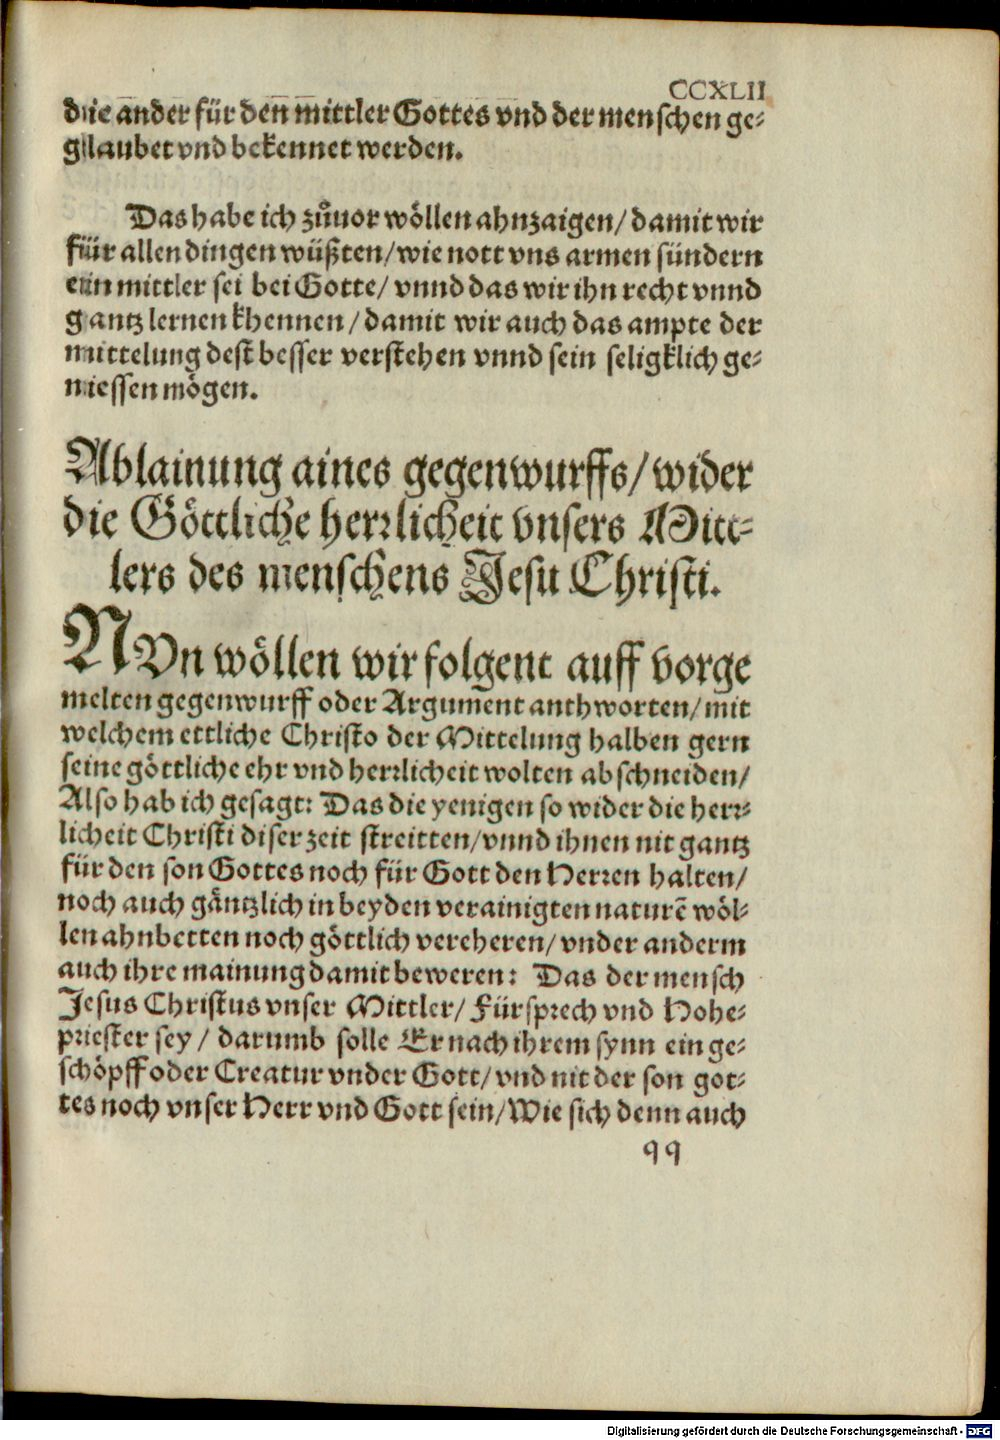 CCXLII
die ander für den mittler Gottes vnd der menschen ge⸗
glaubet vnd bekennet werden.
Das habe ich zůuor wöllen ahnzaigen/ damit wir
für allen dingen wüßten/ wie nott vns armen sündern
ein mittler sei bei Gotte/ vnnd das wir ihn recht vnnd
gantz lernen khennen/ damit wir auch das ampte der
mittelung dest besser verstehen vnnd sein seligklich ge⸗
niessen mögen.
Ablainung aines gegenwurffs/ wider
die Göttliche herrlicheit vnsers Mitt⸗
lers des menschens Jesu Christi.
NVn wöllen wir folgent auff vorge
melten gegenwurff oder Argument anthworten/ mit
welchem ettliche Christo der Mittelung halben gern
seine göttliche ehr vnd herrlicheit wolten abschneiden/
Also hab ich gesagt: Das die yenigen so wider die herr⸗
licheit Christi diser zeit streitten/ vnnd ihnen nit gantz
für den son Gottes noch für Gott den Herren halten/
noch auch gäntzlich in beyden verainigten naturē wöl⸗
len ahnbetten noch göttlich vereheren/ vnder anderm
auch ihre mainung damit beweren: Das der mensch
Jesus Christus vnser Mittler/ Fürsprech vnd Hohe⸗
priester sey/ darumb solle Er nach ihrem synn ein ge⸗
schöpff oder Creatur vnder Gott/ vnd nit der son got⸗
tes noch vnser Herr vnd Gott sein/ Wie sich denn auch
qq
Digitalisierung gefördert durch die Deutsche Forschungsgemeinschaft - DFG